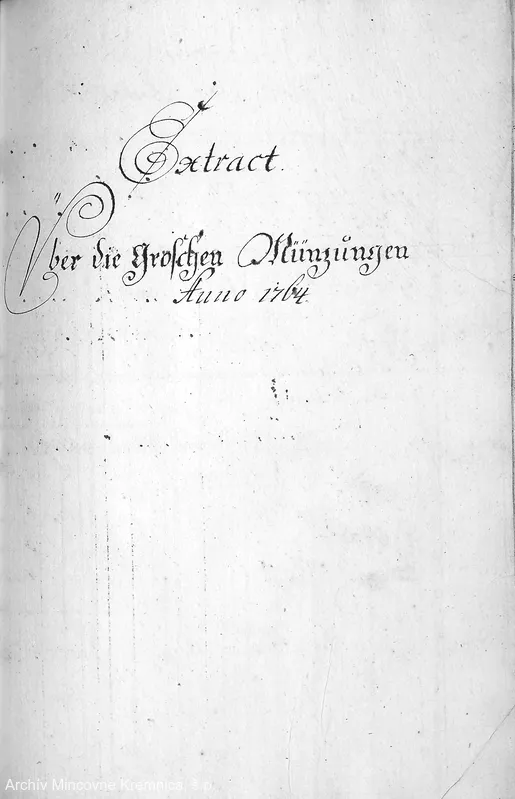 Extract.
Über die Groschen Münzungen
Anno 1764
Archív Mincovne Kremnica, š.p.